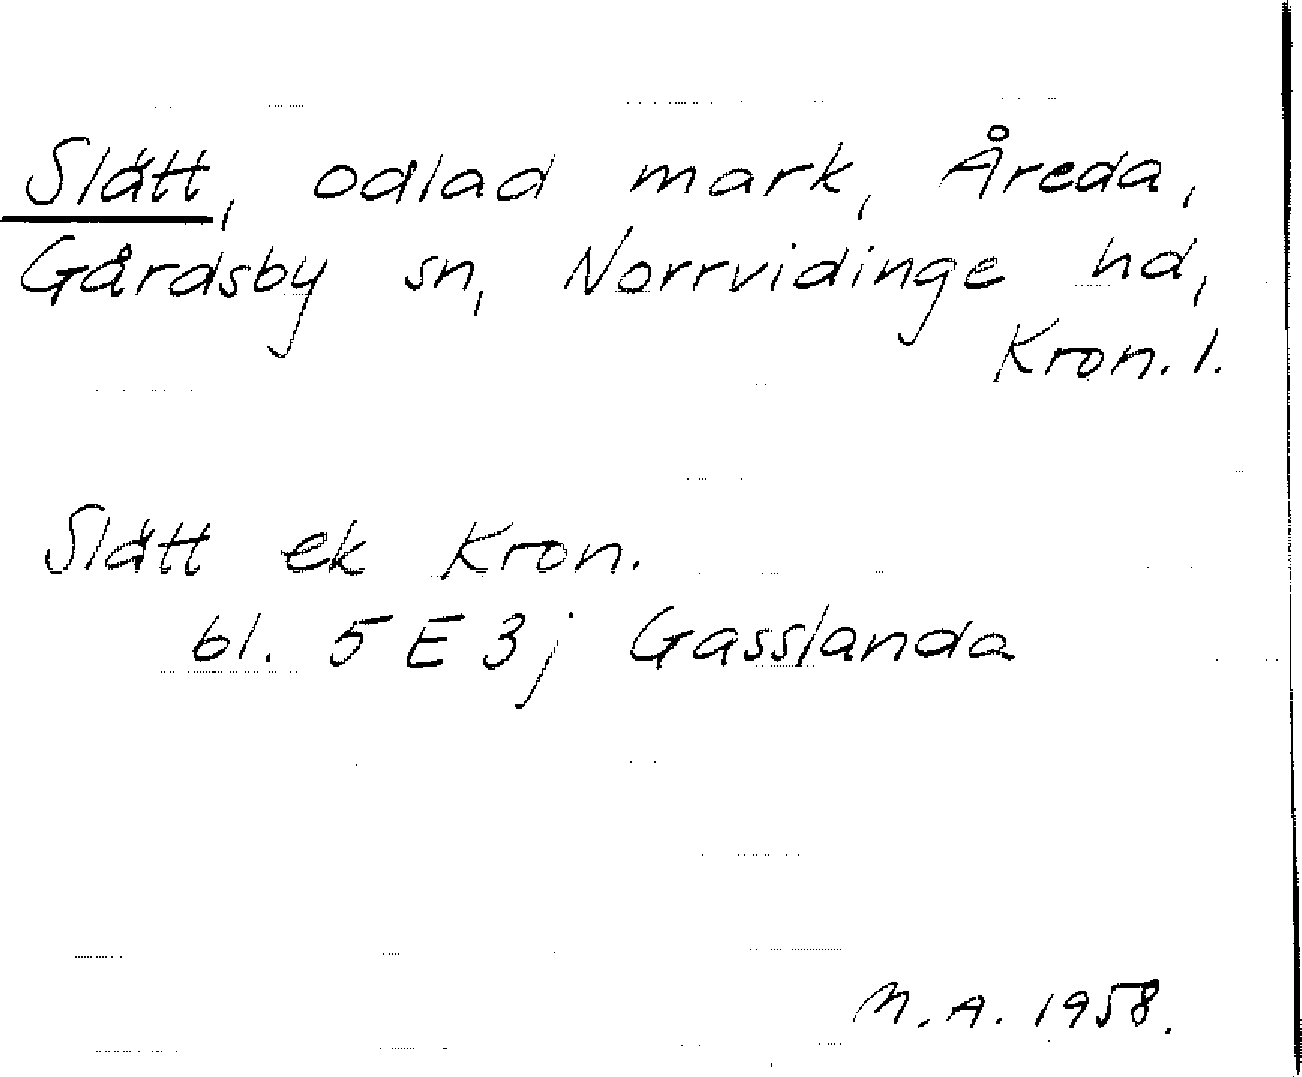 Slätt, odlad mark, Åreda,
Gårdsby sn, Norrvidinge hd,
Kron. l.
Slätt ek Kron.
bl. 5 E 3j Gasslanda
M.A. 1958.